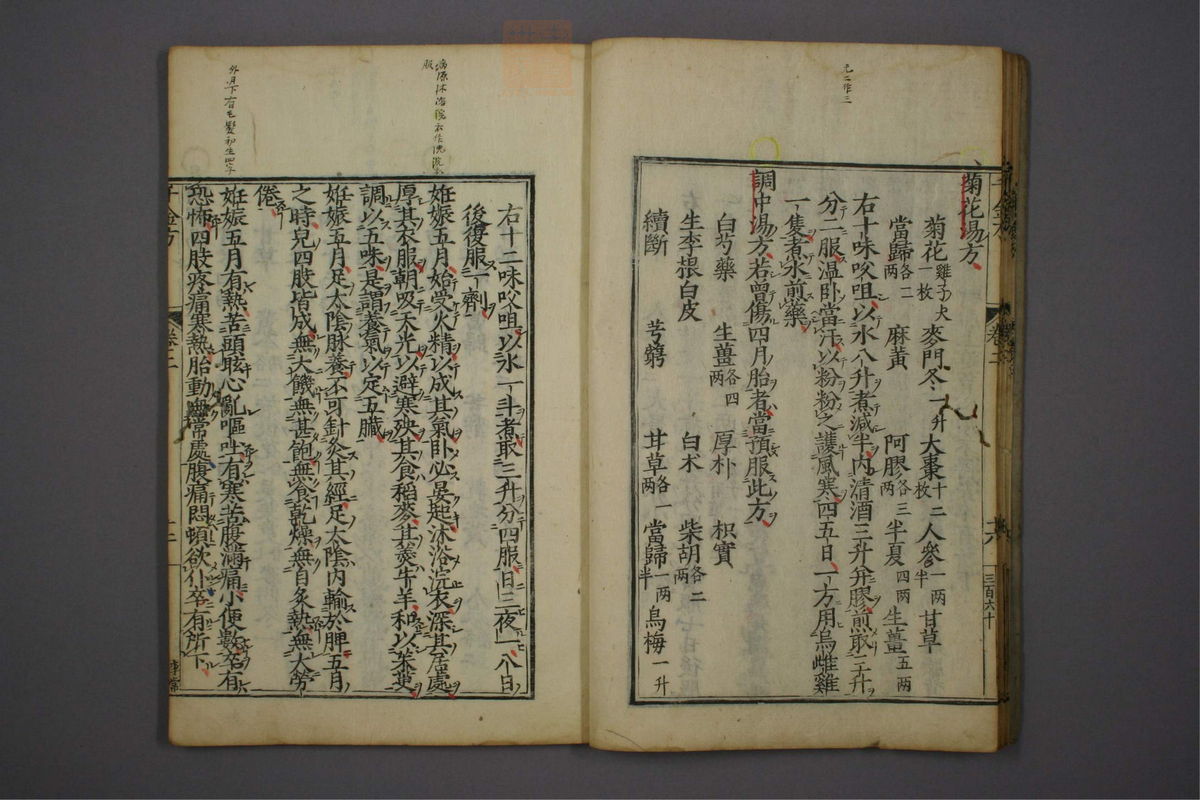 元二作三
菊花湯方
菊花雞子大一枚　麥門冬一升　大棗十二枚　人參一兩半　甘草
當歸各二兩　麻黃　阿膠各三兩　半夏四兩　生薑五兩
右十味㕮咀以水八升煮減半內清酒三升并膠煎取三升
分二服溫卧當汗以粉粉之護風寒四五日一方用烏雌雞
一隻煮水煎藥
調中湯方若曾傷四月胎者當預服此方
白芍藥　生薑各四兩　厚朴　枳實
生李根白皮　白术　柴胡各二兩
續斷　芎藭　甘草各一兩　當歸一兩半　烏梅一升
千金方　卷二　六　三百六十
右十二味㕮咀以水一斗煮取三升分四服日三夜一八日
後復服一劑
妊娠五月始受火精以成其氣卧必晏起沐浴浣衣深其居處
厚其衣服朝吸天光以避寒殃其食稻麥其羹牛羊和以茱萸
調以五味是謂養氣以定五臟
妊娠五月足太陰脉養不可針灸其經足太陰內輸於脾五月
之時兒四肢皆成無大饑無甚飽無食乾燥無自灸熱無大勞
倦
妊娠五月有熱苦頭眩心亂嘔吐有寒苦腹滿痛小便數卒有
恐怖四肢疼痛寒熱胎動無常處腹痛悶頓欲仆卒有所下
千金方　卷二